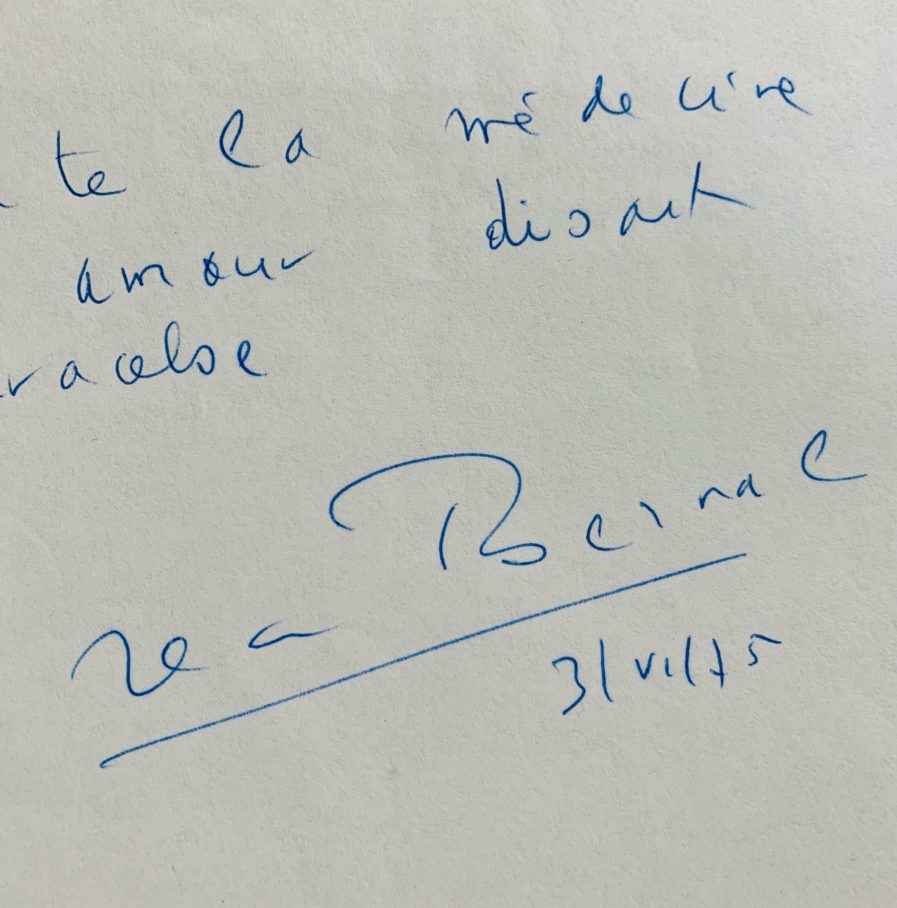 te la médecine
amour disait
racelse
Jean Bernard
3/VI/75